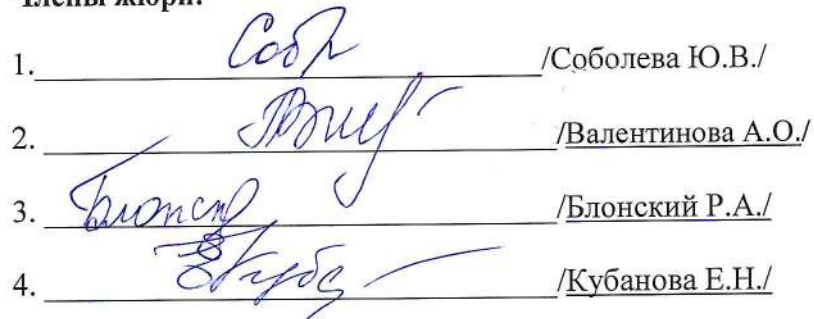 Члены жюри:
1. /Соболева Ю.В./
2. /Валентинова А.О./
3. /Блонский Р.А./
4. /Кубанова Е.Н./